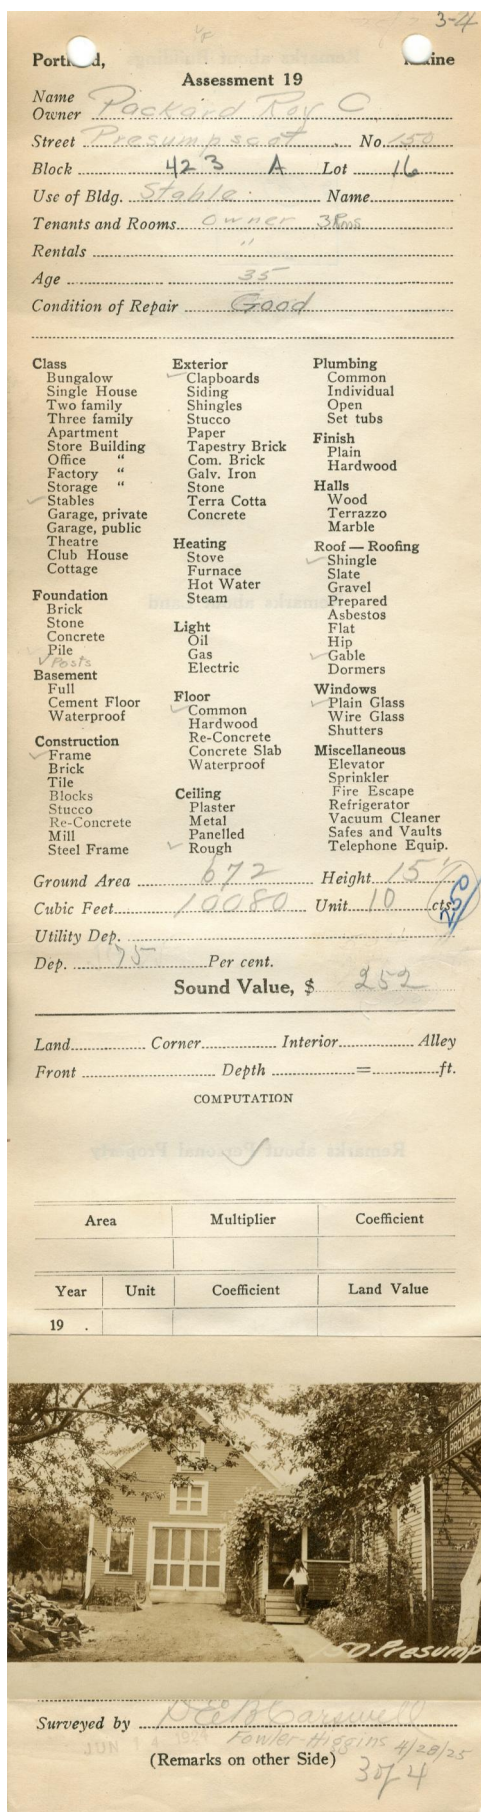 3-4
Portland, Maine
Assessment 19
Name
Owner Packard Roy C
Street Presumpscot No. 150
Block 423 A Lot 16
Use of Bldg. Stable Name
Tenants and Rooms Owner 3 Rms
Rentals "
Age 35
Condition of Repair Good
Class
Bungalow
Single House
Two family
Three family
Apartment
Store Building
Office "
Factory "
Storage "
✓ Stables
Garage, private
Garage, public
Theatre
Club House
Cottage
Foundation
Brick
Stone
Concrete
Pile
✓ Posts
Basement
Full
Cement Floor
Waterproof
Construction
✓ Frame
Brick
Tile
Blocks
Stucco
Re-Concrete
Mill
Steel Frame
Exterior
✓ Clapboards
Siding
Shingles
Stucco
Paper
Tapestry Brick
Com. Brick
Galv. Iron
Stone
Terra Cotta
Concrete
Heating
Stove
Furnace
Hot Water
Steam
Light
Oil
Gas
Electric
Floor
✓ Common
Hardwood
Re-Concrete
Concrete Slab
Waterproof
Ceiling
Plaster
Metal
Panelled
✓ Rough
Plumbing
Common
Individual
Open
Set tubs
Finish
Plain
Hardwood
Halls
Wood
Terrazzo
Marble
Roof — Roofing
✓ Shingle
Slate
Gravel
Prepared
Asbestos
Flat
Hip
✓ Gable
Dormers
Windows
✓ Plain Glass
Wire Glass
Shutters
Miscellaneous
Elevator
Sprinkler
Fire Escape
Refrigerator
Vacuum Cleaner
Safes and Vaults
Telephone Equip.
Ground Area 672 Height 15'
Cubic Feet 10080 Unit 10 cts.
250
Utility Dep.
Dep. 75 Per cent.
Sound Value, $ 252
Land Corner Interior Alley
Front Depth = ft.
COMPUTATION
Area Multiplier Coefficient
Year Unit Coefficient Land Value
19 .
GROCERIES
PROVISIONS
150 Presump
Surveyed by D E B Carswell
JUN 14 1924 Fowler-Higgins 4/28/25
(Remarks on other Side)
3 of 4